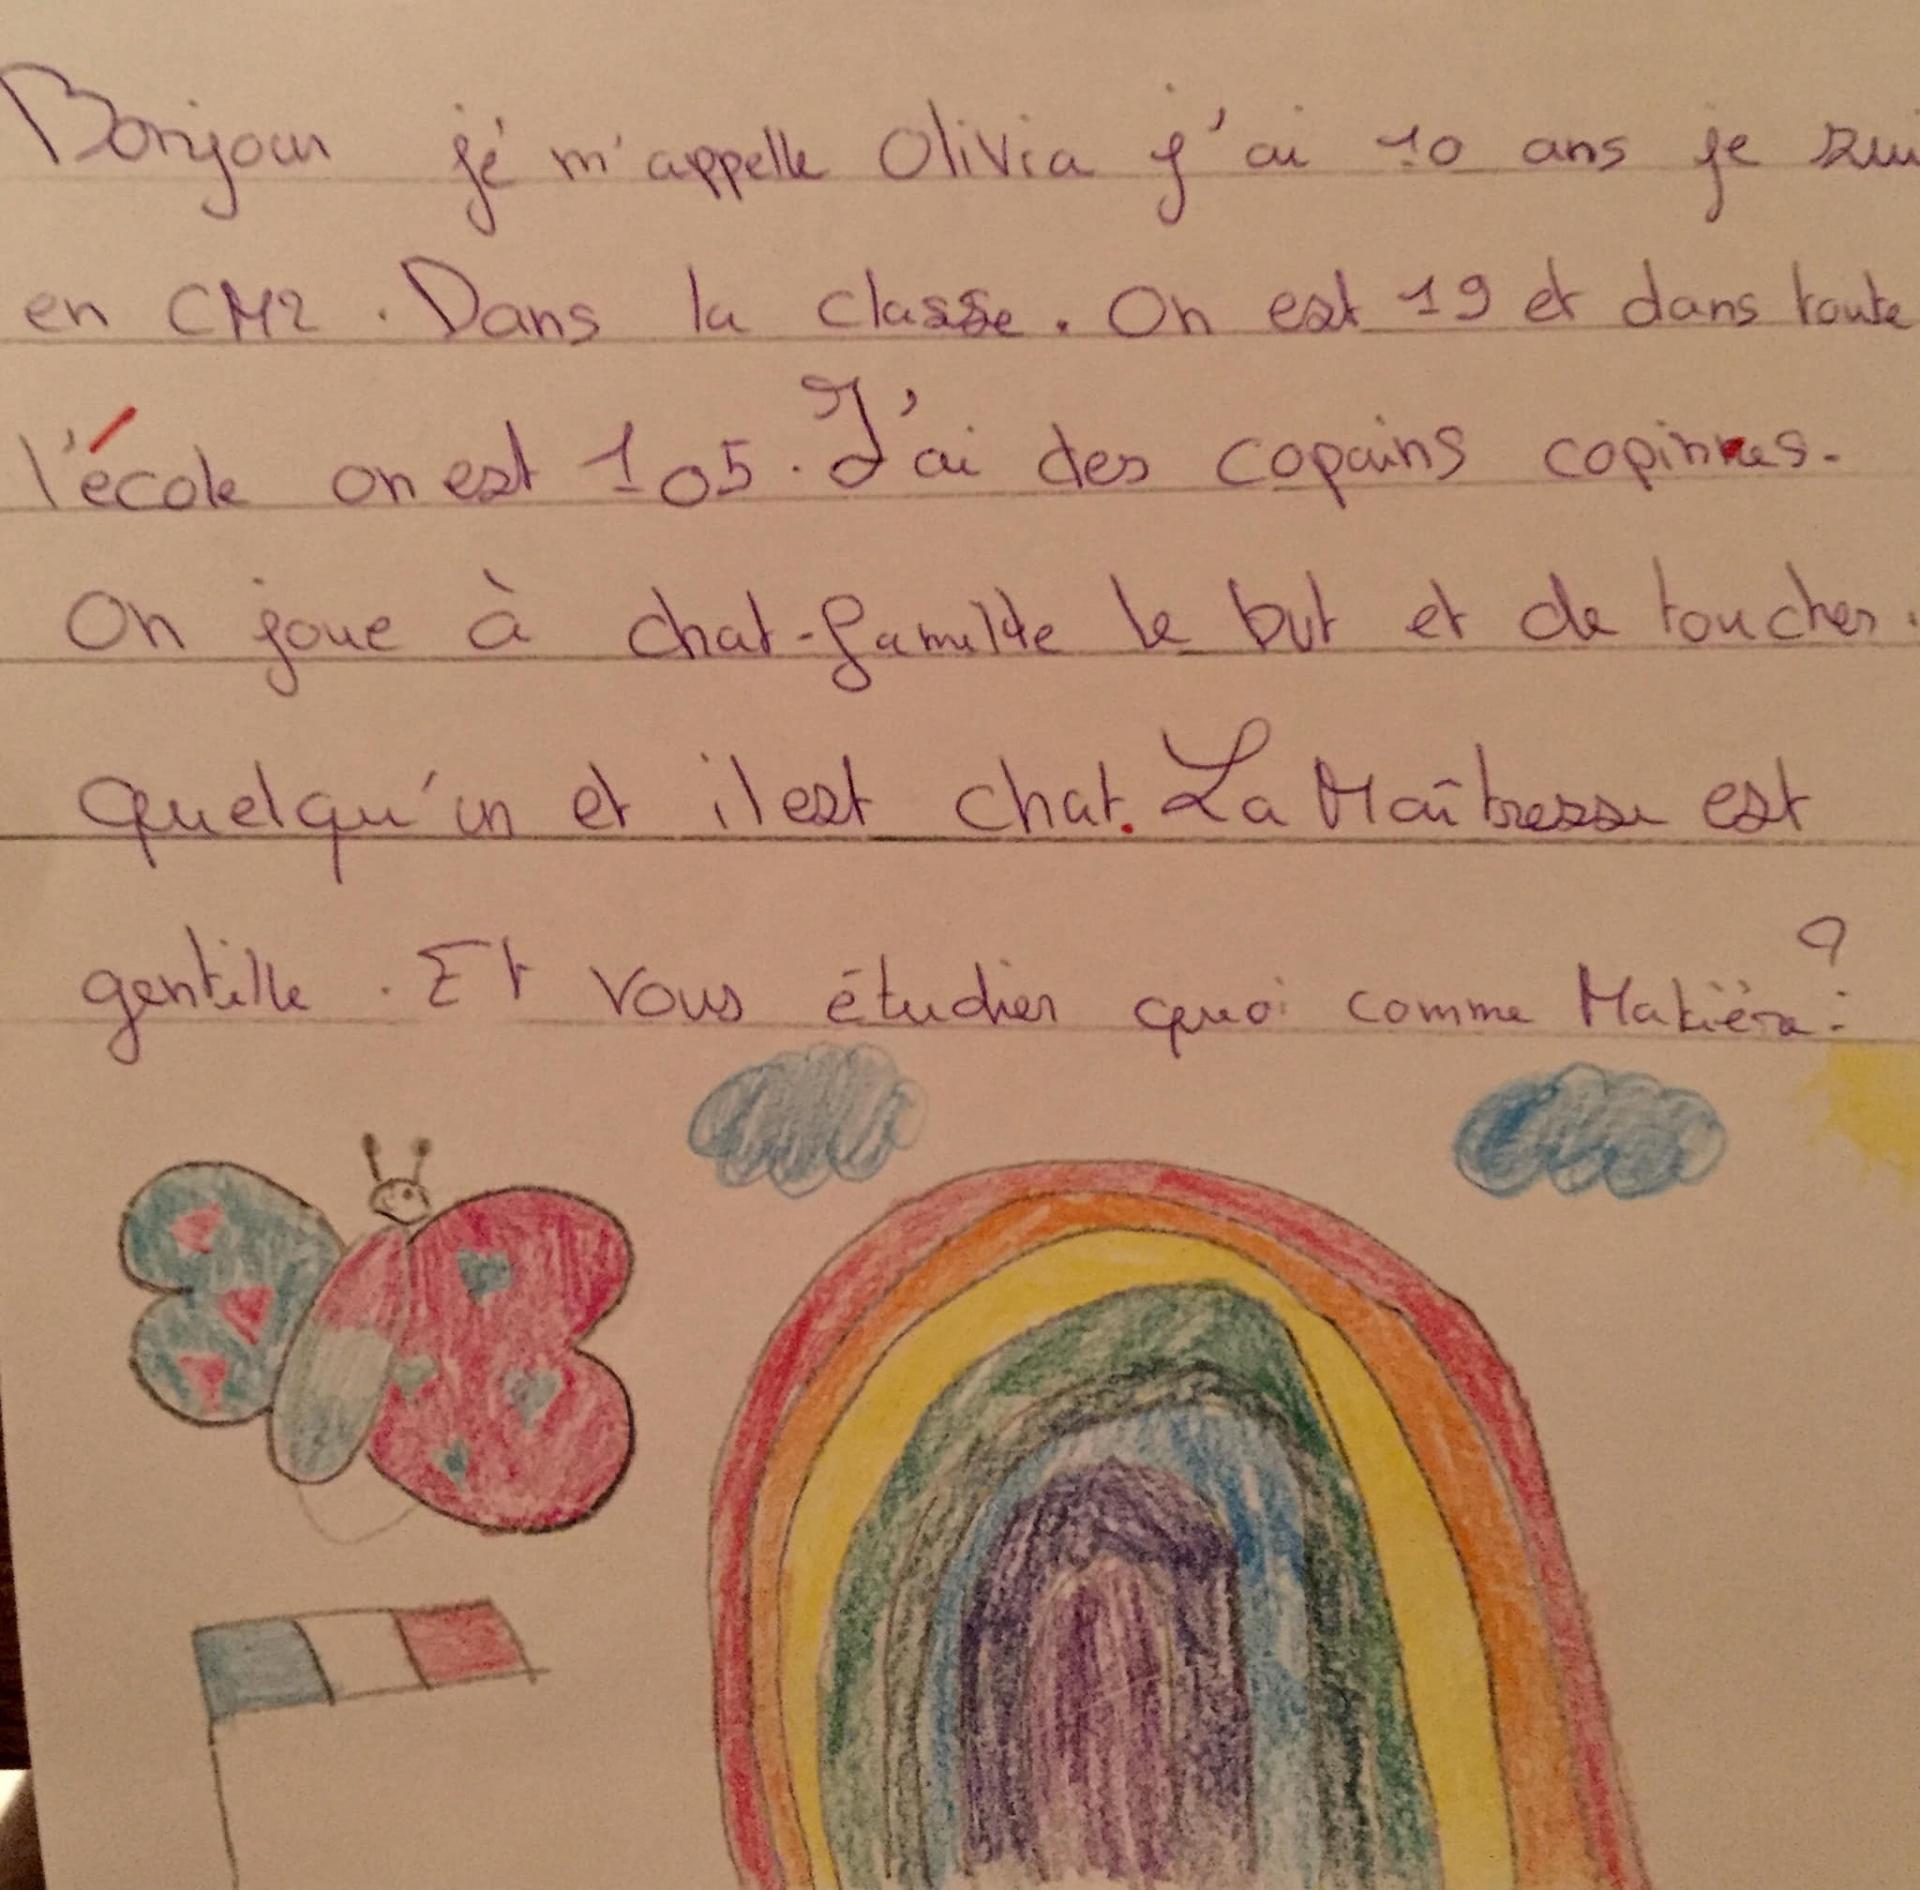 Bonjour je m'appelle Olivia j'ai 10 ans je sui
en CM2. Dans la classe. On est 19 et dans toute
l'école on est 105. J'ai des copains copines.
On joue à chat-famille le but et de toucher.
quelqu'un et il est chat. La Maîtresse est
gentille. Et vous étudier quoi comme Matière?